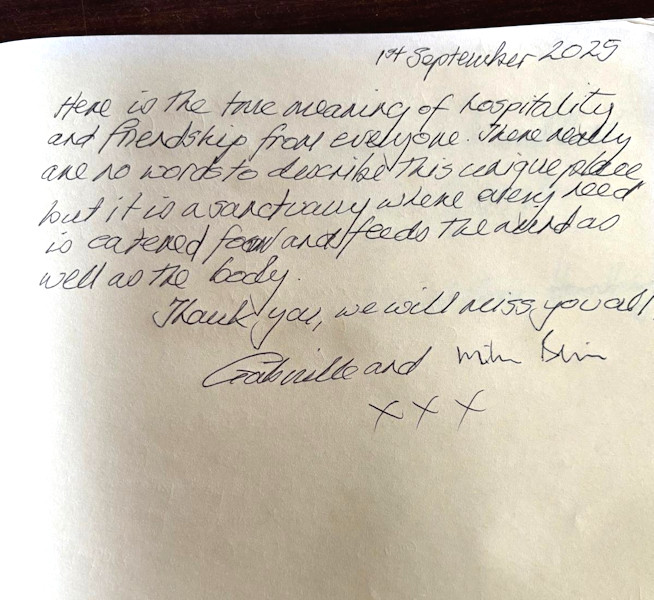 1st September 2025
Here is the true meaning of hospitality
and friendship from everyone. There really
are no words to describe this unique place
but it is a sanctuary where every need
is catered for and feeds the mind as
well as the body.
Thank you, we will miss you all
Gabrielle and
x x x